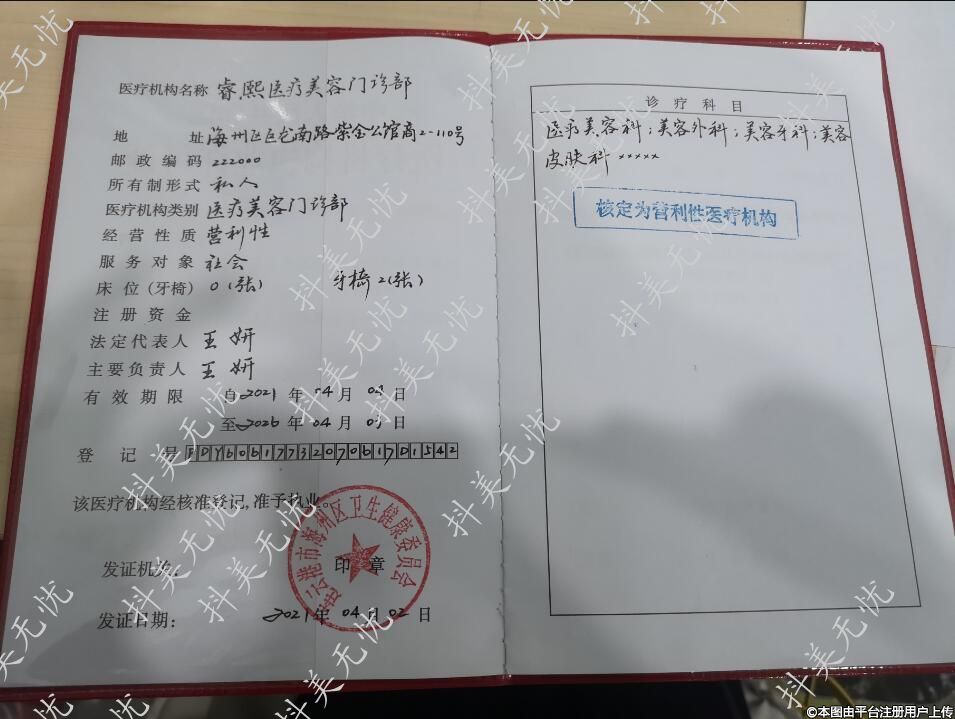 医疗机构名称 睿熙医疗美容门诊部
地 址 海州区巨龙南路紫金公馆商2-110号
邮政编码 222000
所有制形式 私人
医疗机构类别 医疗美容门诊部
经营性质 营利性
服务对象 社会
床位(牙椅) 0(张) 牙椅2(张)
注册资金
法定代表人 王妍
主要负责人 王妍
有效期限 自2021年04月02日
至2026年04月01日
登记号
该医疗机构经核准登记,准予执业。
连云港市海州区卫生健康委员会
发证机关: 印章
发证日期: 2021年04月02日
诊疗科目
医疗美容科;美容外科;美容牙科;美容
皮肤科 ×××××
核定为营利性医疗机构
抖美无忧
©本图由平台注册用户上传